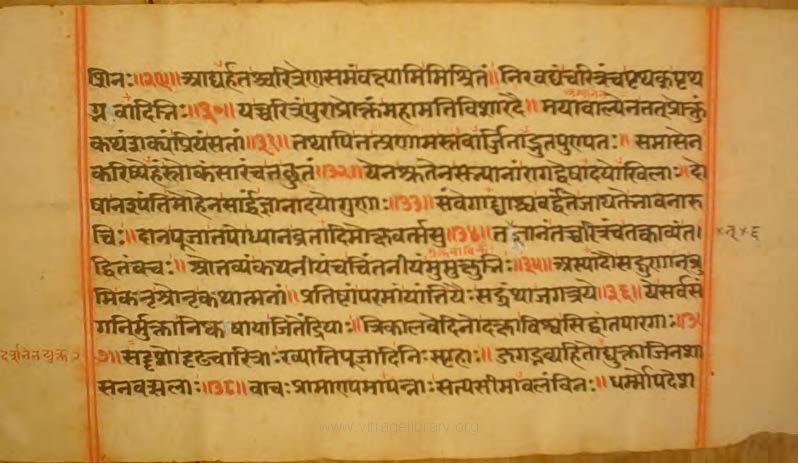 त्रिनः॥२९॥आद्यर्हतश्चरित्रेणसमंवक्ष्यामिमिश्रितं॥निरवद्यंचरित्रंचपृथक्पृथ
ग्र वादिभिः॥३०॥यच्चरित्रंपुराप्रोक्तंमहामतिविशारदैः॥मयाबाल्येनतत्प्रोक्तुं
कथंशक्यंप्रियंसतां॥३१॥तथापितत्प्रणामस्तवार्जिताद्भुतपुण्यतः॥समासेन
करिष्येहंस्तोकंसारंचतच्छ्रुतं॥३२॥येनश्रुतेनसत्यानांरागद्वेषादयोखिलाः॥दो
षानश्यंतिमोहेनसार्द्धंज्ञानादयोगुणाः॥३३॥संवेगाद्याश्चवर्द्धंतेजायतेभावनारु
चिः॥दानपूजातपोध्यानव्रतादिमोक्षवर्त्मसु॥३४॥तज्ञानंतच्चरित्रंचतत्काव्यंत।
द्धितंवचः॥श्रोतव्यंकथनीयंचचिंतनीयंमुमुक्षुभिः॥३५॥अस्यादौसद्गुणान्ब्रु
मिवक्तृश्रोतृकथात्मनां॥प्रतिष्ठांपरमांयांतियैःसद्ग्रंथाजगत्रये॥३६॥येसर्वसं
गनिर्मुक्तानिःकषायाजितेंद्रियाः॥त्रिकालवेदिनोदक्षाविश्वसिद्धांतपारगाः॥३
७॥सदृशोदृढचारित्राःख्यातिपूजादिनिःस्पृहाः॥जगद्भव्यहितोद्युक्ताजिनशा
सनवत्सलाः॥३८॥वाचःप्रामाण्यमापन्नाःसत्यसीमावलंबिनः॥धर्मोपदेश
www.vitragelibrary.org